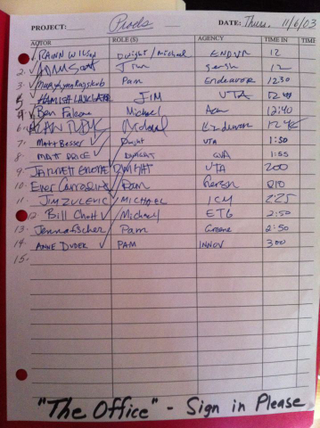 PROJECT: Prods DATE: Thurs. 11/6/03
ACTOR ROLE(S) AGENCY TIME IN TIME
RAINN WILSON Dwight/Michael Endvr 12
2. Jim Gersh 12
3. Mary Lynn Rajskub Pam Endeavor 1230
HAMISH LINKLATER JIM UTA 12:40
Ben Falcone Michael 12:40
6. Michael Endeavor 12:45
7. Matt Besser Dwight UTA 1:50
8. MATT PRICE DWIGHT 1:55
9. DWIGHT UTA 200
10. Ever Carradine Pam Gersh 210
11. JIM ZULEVIC MICHAEL ICM 225
12 Bill Michael ETG 2:50
13. Jenna Fischer Pam Greene 2:50
14. ANNE DUDEK PAM INNOV 300
15.
"The Office" - Sign in Please